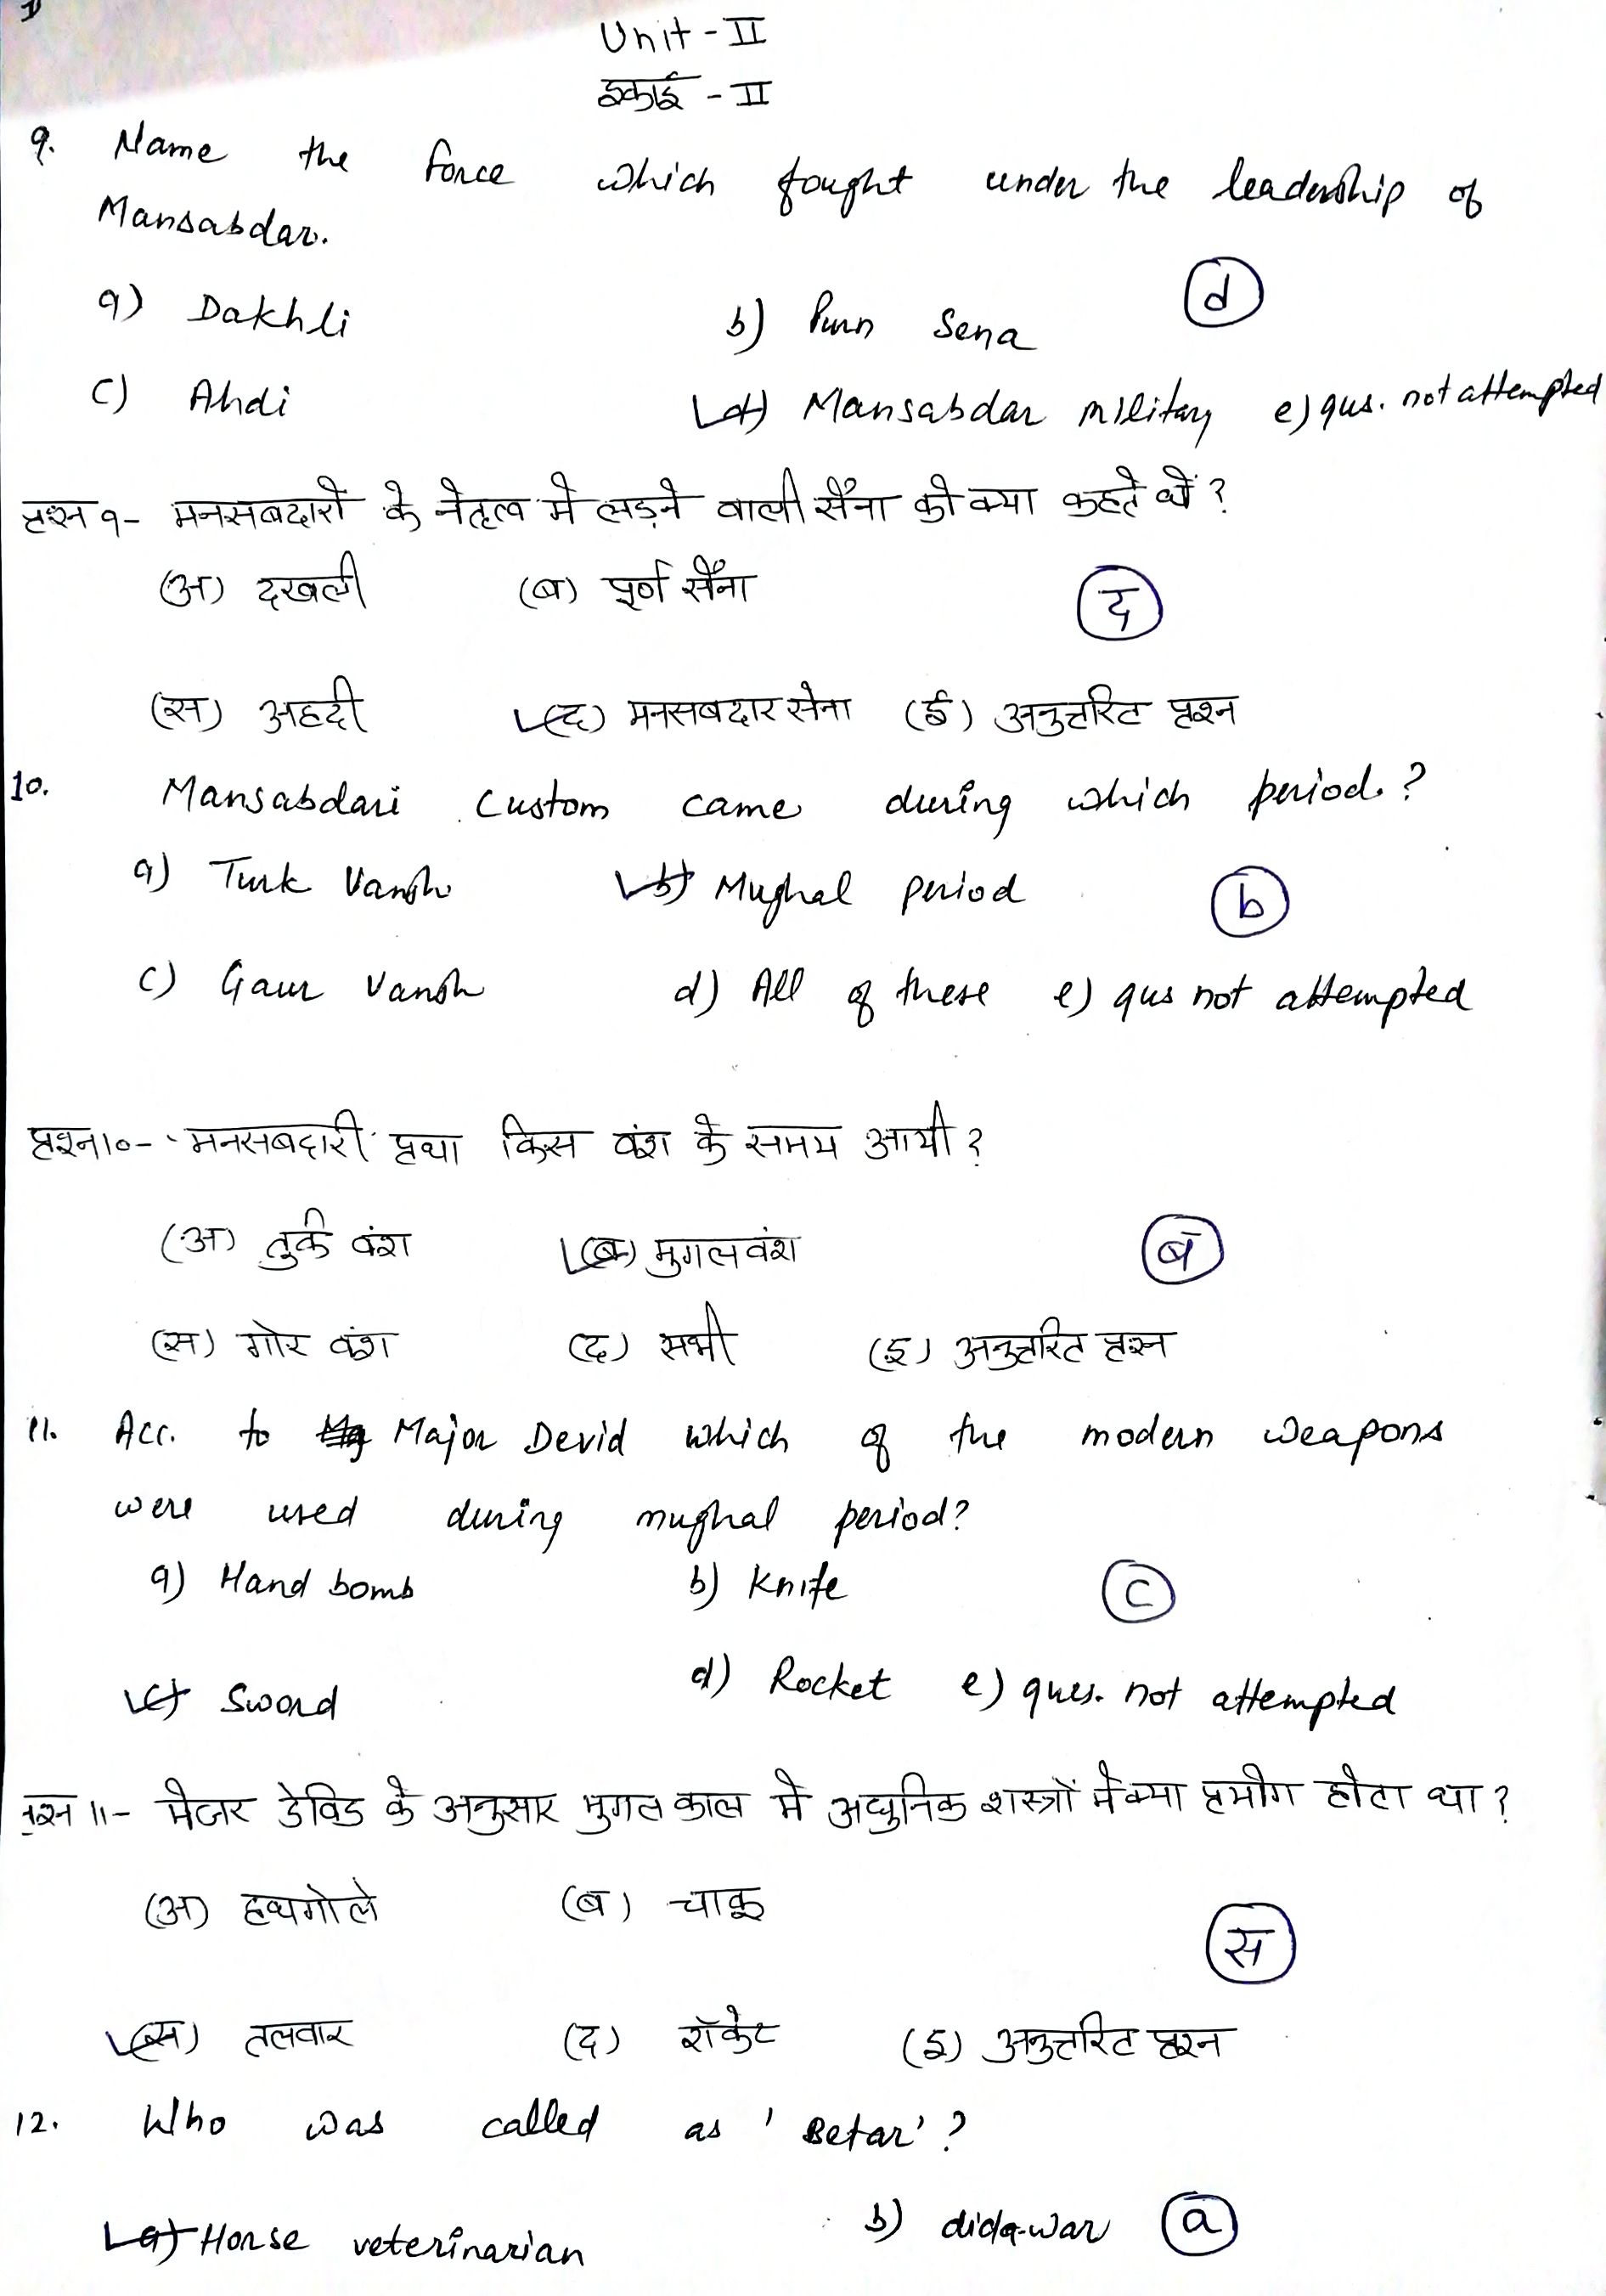 Unit - II
इकाई - II
9. Name the force which fought under the leadership of
Mansabdar.
a) Dakhli b) Purn Sena (d)
c) Ahdi d) Mansabdar military e) qus. not attempted
प्रश्न 9- मनसबदारों के नेतृत्व मे लड़ने वाली सैंना को क्या कहते थें ?
(अ) दखली (ब) पूर्ण सैंना (द)
(स) अहदी (द) मनसबदार सेना (ई) अनुत्तरित प्रश्न
10. Mansabdari custom came during which period. ?
a) Turk Vansh b) Mughal period (b)
c) Gaur Vansh d) All of these e) qus not attempted
प्रश्न 10- मनसबदारी प्रथा किस वंश के समय आयी ?
(अ) तुर्क वंश (ब) मुगल वंश (ब)
(स) गोर वंश (द) सभी (इ) अनुत्तरित प्रश्न
11. Acc. to Major Devid which of the modern weapons
were used during mughal period?
a) Hand bomb b) Knife (c)
c) Sword d) Rocket e) ques. not attempted
प्रश्न 11- मेजर डेविड के अनुसार मुगल काल मे अधुनिक शस्त्रों में क्या प्रयोग होता था ?
(अ) हथगोले (ब) चाकू (स)
(स) तलवार (द) रॉकेट (इ) अनुत्तरित प्रश्न
12. Who was called as 'Betar' ?
a) Horse veterinarian b) didq-war (a)